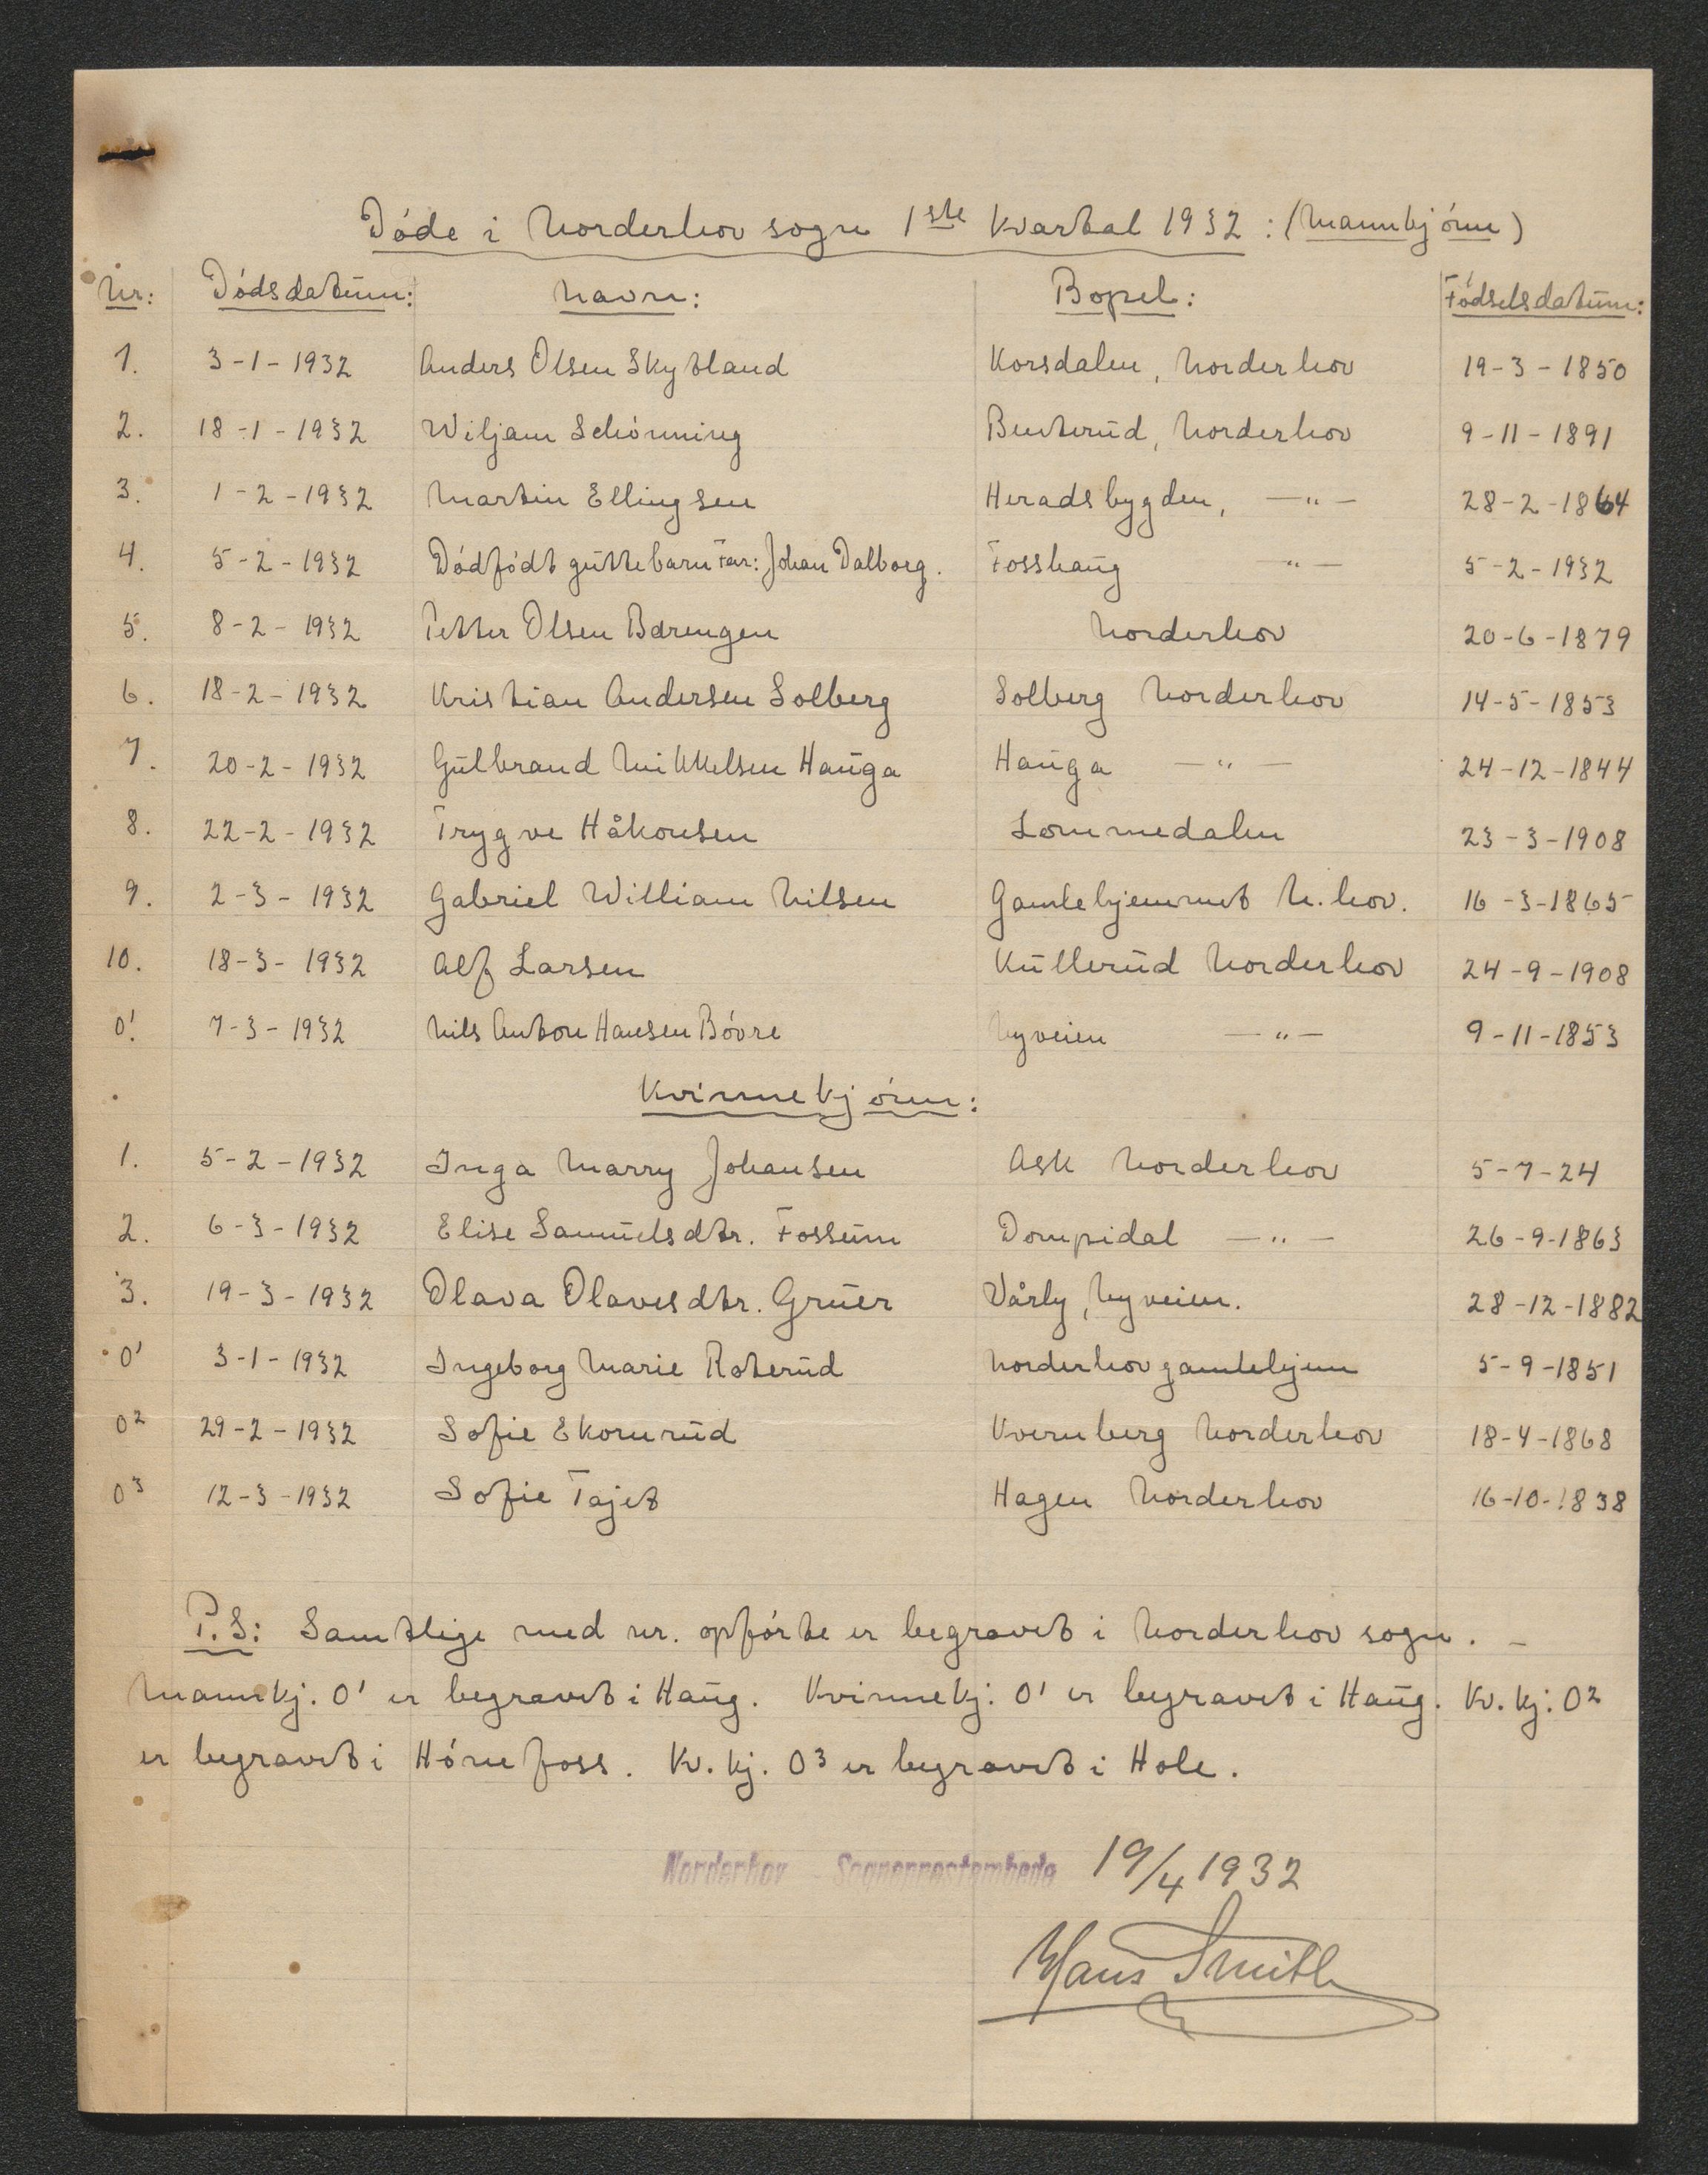 Døde i Norderhov sogn 1ste kvartal 1932: (Mannkjønn)
Nr: Dødsdatum: Navn: Bopel: Fødselsdatum:
1. 3-1-1932 Anders Olsen Skytland Korsdalen, Norderhov 19-3-1850
2. 18-1-1932 Wiljam Schønning Benterud, Norderhov 9-11-1891
3. 1-2-1932 Martin Ellingsen Heradsbygden, —"— 28-2-1864
4. 5-2-1932 Dødfødt guttebarn Far: Johan Dalborg. Fosshaug —"— 5-2-1932
5. 8-2-1932 Petter Olsen Bærengen Norderhov 20-6-1879
6. 18-2-1932 Kristian Andersen Solberg Solberg Norderhov 14-5-1853
7. 20-2-1932 Gulbrand Mikkelsen Hauga Hauga —"— 24-12-1844
8. 22-2-1932 Trygve Håkonsen Lommedalen 23-3-1908
9. 2-3-1932 Gabriel William Nilsen Gamlehjemmet N.hov. 16-3-1865
10. 18-3-1932 Alf Larsen Kullerud Norderhov 24-9-1908
0' 7-3-1932 Nils Anton Hansen Bøvre Nyveien —"— 9-11-1853
Kvinnekjønn:
1. 5-2-1932 Inga Marry Johansen Ask Norderhov 5-7-24
2. 6-3-1932 Elise Samuelsdtr. Fossum Dompidal —"— 26-9-1863
3. 19-3-1932 Olava Olavesdtr. Gruer Vårly, Nyveien. 28-12-1882
0' 3-1-1932 Ingeborg Marie Roterud Norderhov gamlehjem 5-9-1851
0² 29-2-1932 Sofie Ekornrud Kvernberg Norderhov 18-4-1868
0³ 12-3-1932 Sofie Tajet Hagen Norderhov 16-10-1838
P.S: Samtlige med nr. opførte er begravet i Norderhov sogn. —
Mannkj. 0' er begravet i Haug. Kvinnekj: 0' er begravet i Haug. Kv. kj: 0²
er begravet i Hønefoss. Kv. kj. 0³ er begravet i Hole.
Norderhov - Sogneprestembede 19/4 1932
Hans Smith